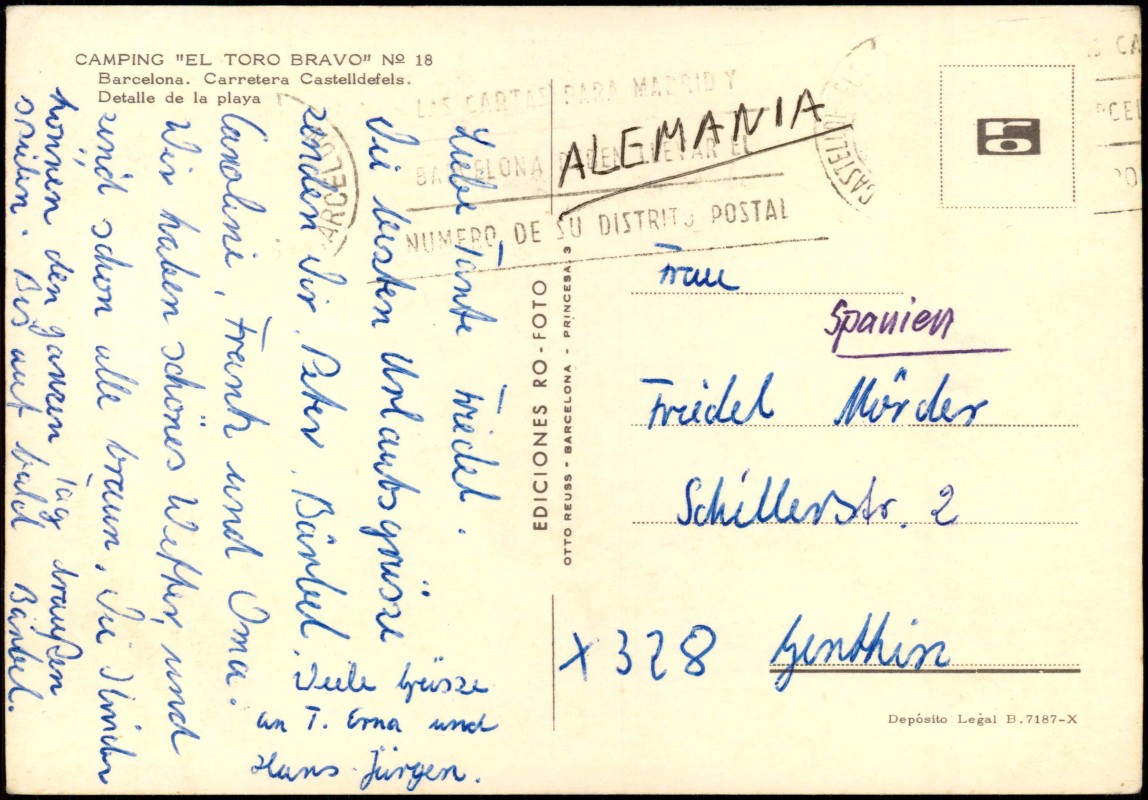 CAMPING "EL TORO BRAVO" Nº 18
Barcelona. Carretera Castelldefels.
Detalle de la playa
Liebe Tante Friedel.
Die besten Urlaubsgrüsse
senden Dir, Peter, Bärbel,
Caroline, Frank und Oma.
Wir haben schönes Wetter, und
sind schon alle braun. Die Kinder
können den ganzen Tag draußen
spielen. Bis auf bald Bärbel.
Viele Grüsse
an T. Erna und
Hans-Jürgen.
EDICIONES RO-FOTO
OTTO REUSS - BARCELONA - PRINCESA, 3
LAS CARTAS PARA MADRID Y
BARCELONA DEBEN LLEVAR EL
NUMERO DE SU DISTRITO POSTAL
ALEMANIA
Frau
Spanien
Friedel Mörder
Schillerstr. 2
X 328 Genthin
Depósito Legal B.7187-X